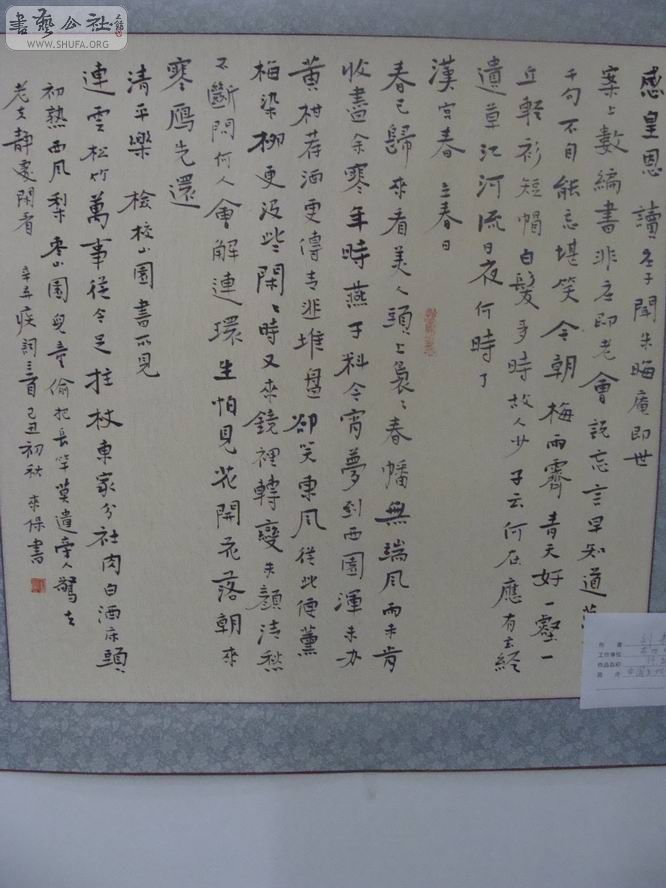 書藝公社
WWW.SHUFA.ORG
感皇恩 讀庄子聞朱晦庵即世
案上數編書非庄即老會說忘言早知道萬
千句不自能忘堪笑今朝梅雨霽青天好一壑一
丘輕衫短帽白髮多時故人少子云何在應有玄經
遺草江河流日夜何時了
漢宮春 立春日
春已歸來看美人頭上裊裊春幡無端風雨未肯
收盡余寒年時燕子料今宵夢到西園渾未办
黄柑荐酒更傳青韭堆盘卻笑東風從此便薰
梅染柳更没些閑閑時又來鏡裡轉變朱顏清愁
不斷問何人會解連環生怕見花開花落朝來
寒雁先還
清平樂 檢校山園書所見
連雲松竹萬事從今足拄杖東家分社肉白酒床頭
初熟西風梨枣山園兒童偷把長竿莫遣旁人驚去
老夫靜處閑看 辛弃疾詞三首己丑初秋來保書
作者
工作單位
作品名稱